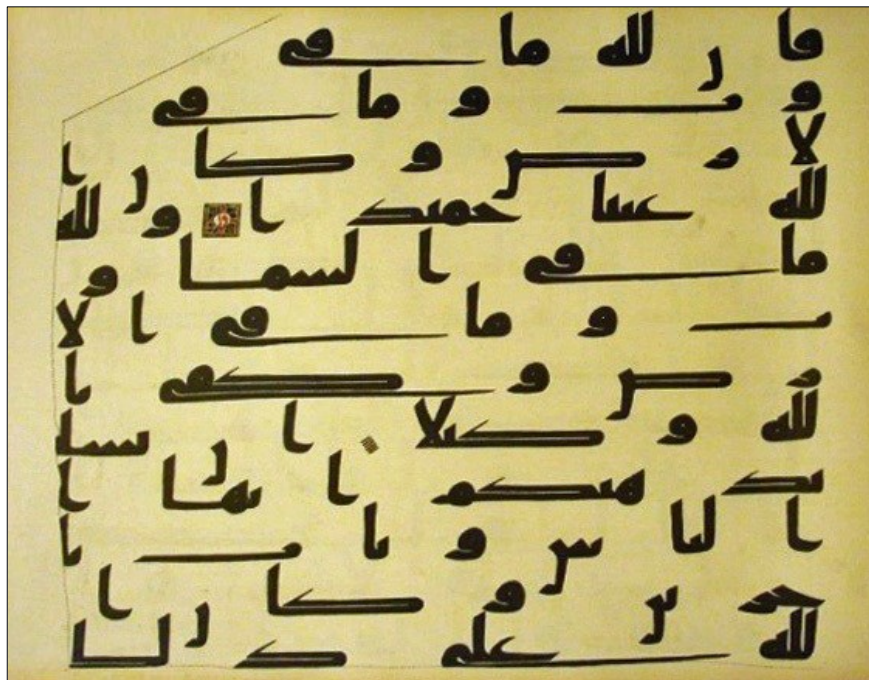 فان لله ما في
وت وما في
لارض وكان ا
لله غنيا حميدا ولله
ما في السماو
ت وما في الا
رض وكفى با
لله وكيلا ان يشا
يذهبكم ايها ا
لناس ويات با
خرين وكان ا
لله على ذ